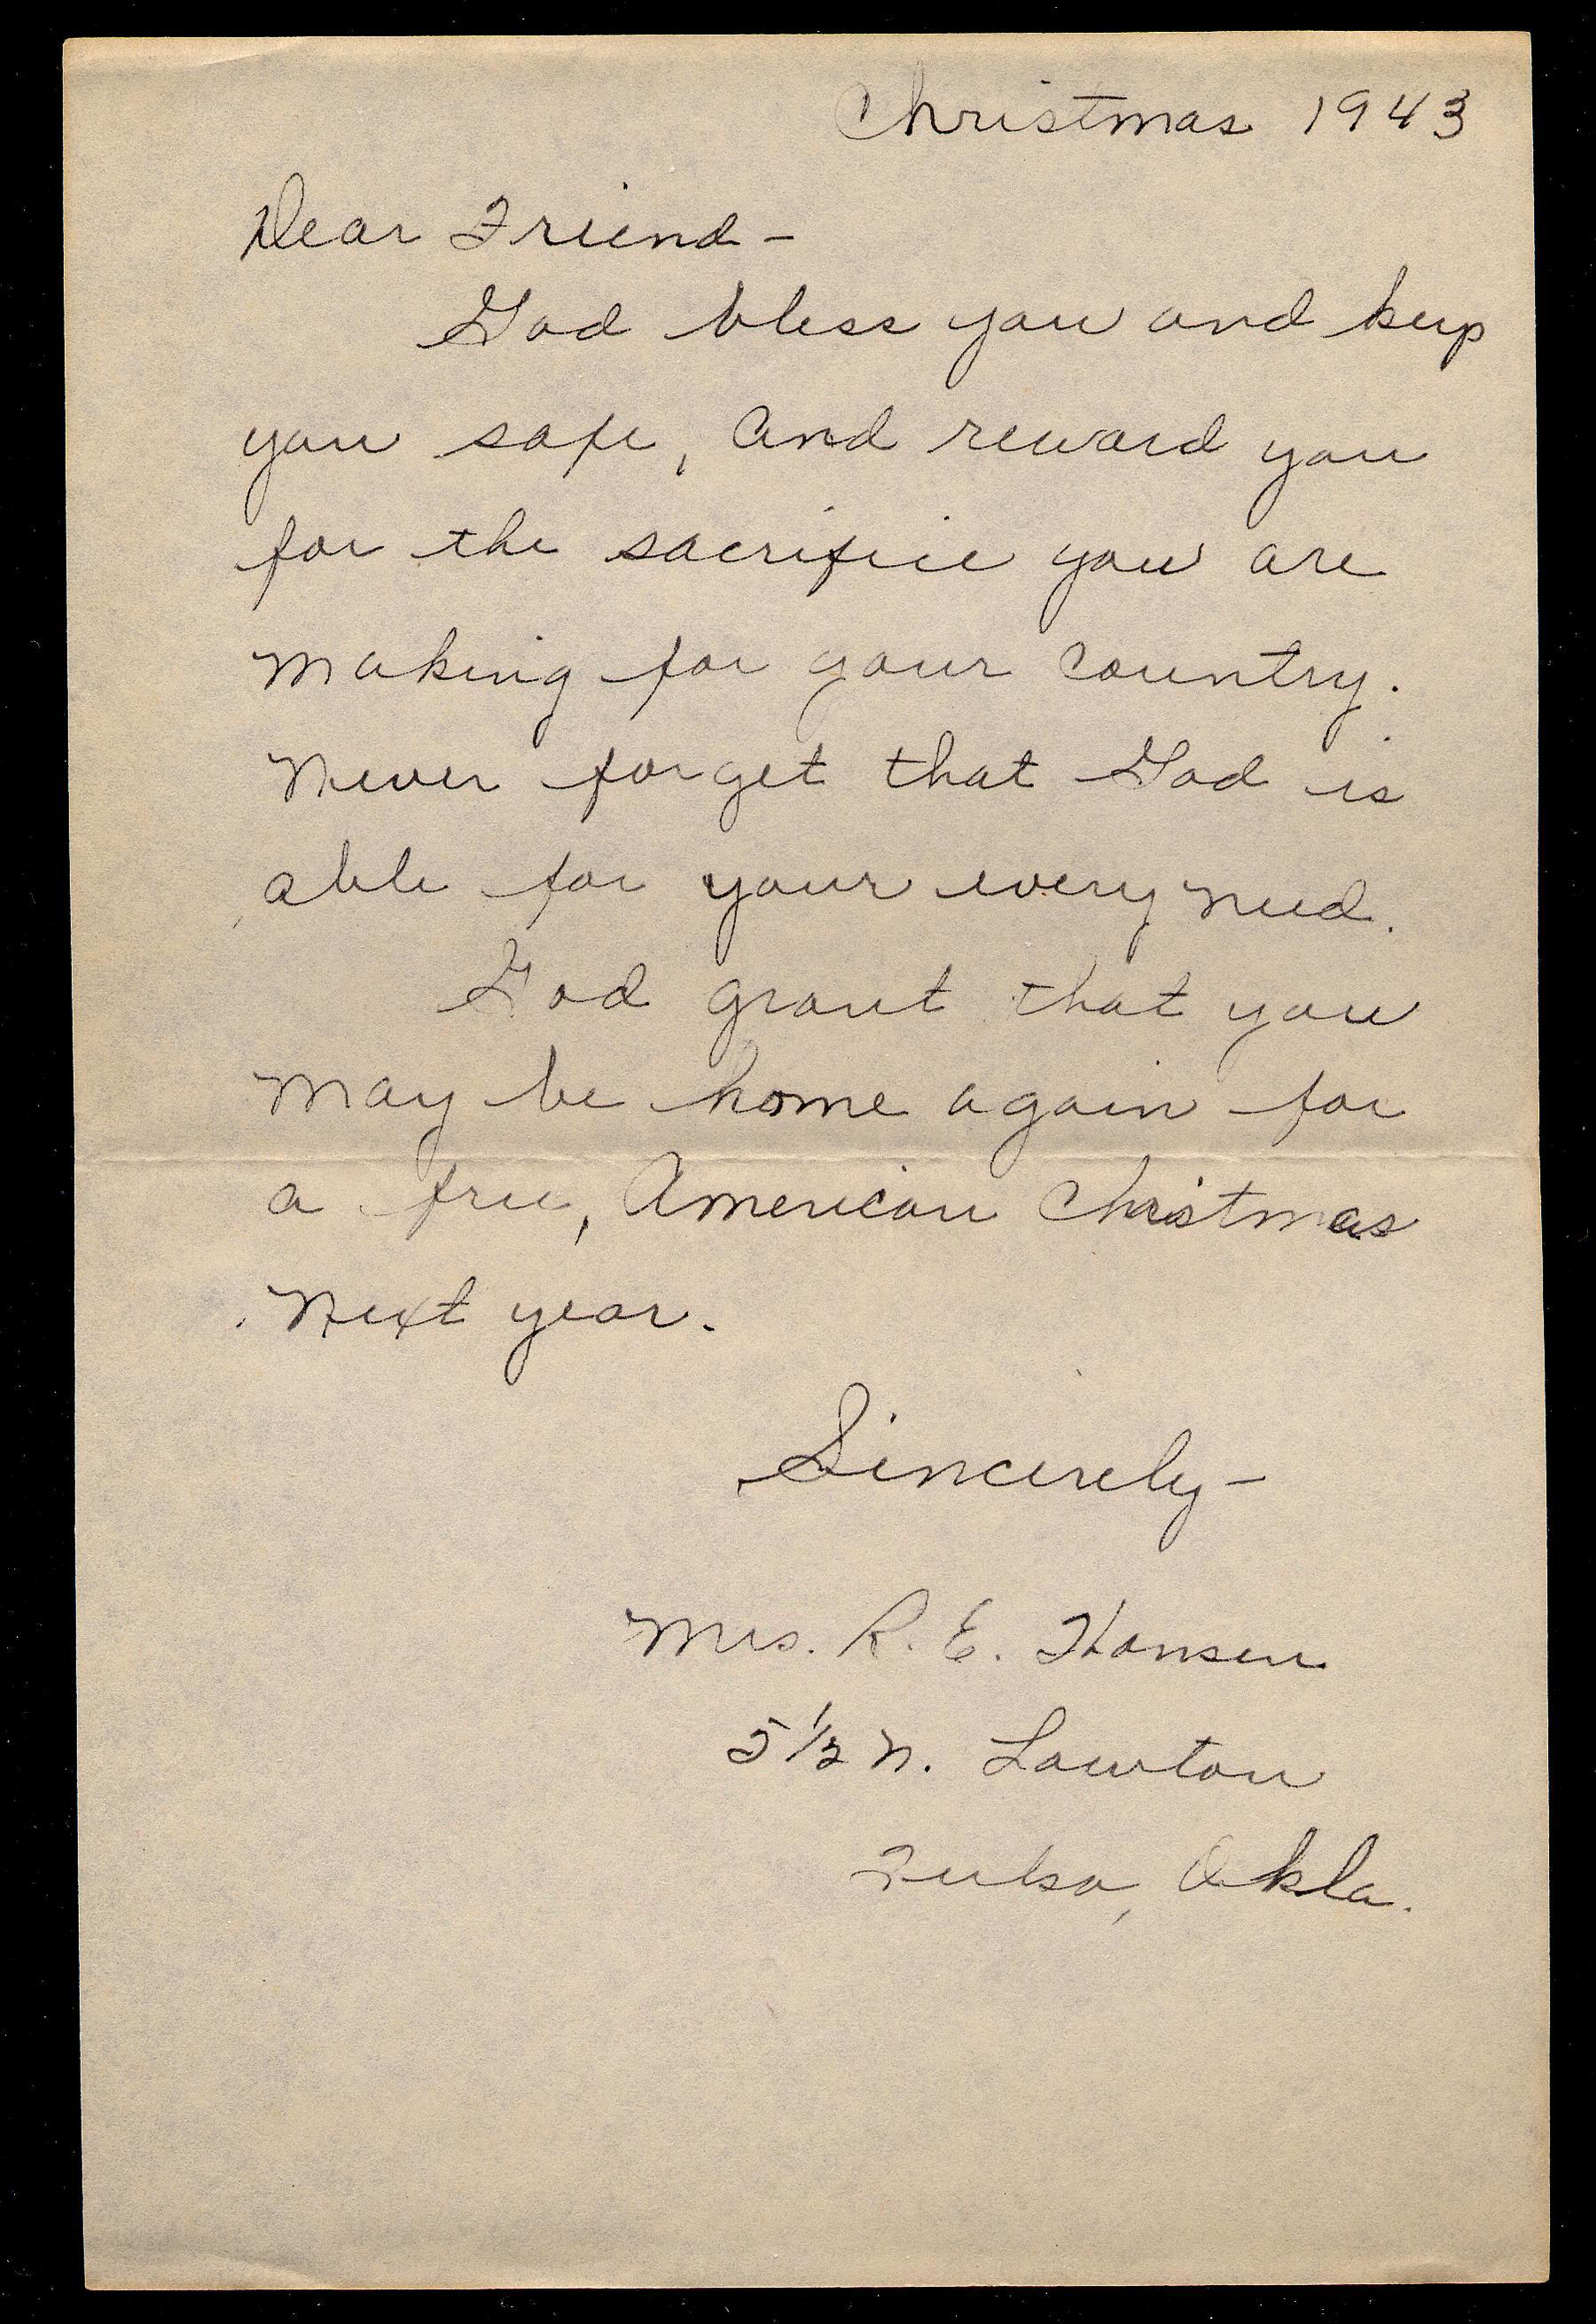 Christmas 1943
Dear Friend -
God bless you and keep
you safe, and reward you
for the sacrifice you are
making for your country.
Never forget that God is
able for your every need.
God grant that you
may be home again for
a free, American Christmas
next year.
Sincerely -
Mrs. R. E. Hansen
5 1/2 N. Lawton
Tulsa, Okla.